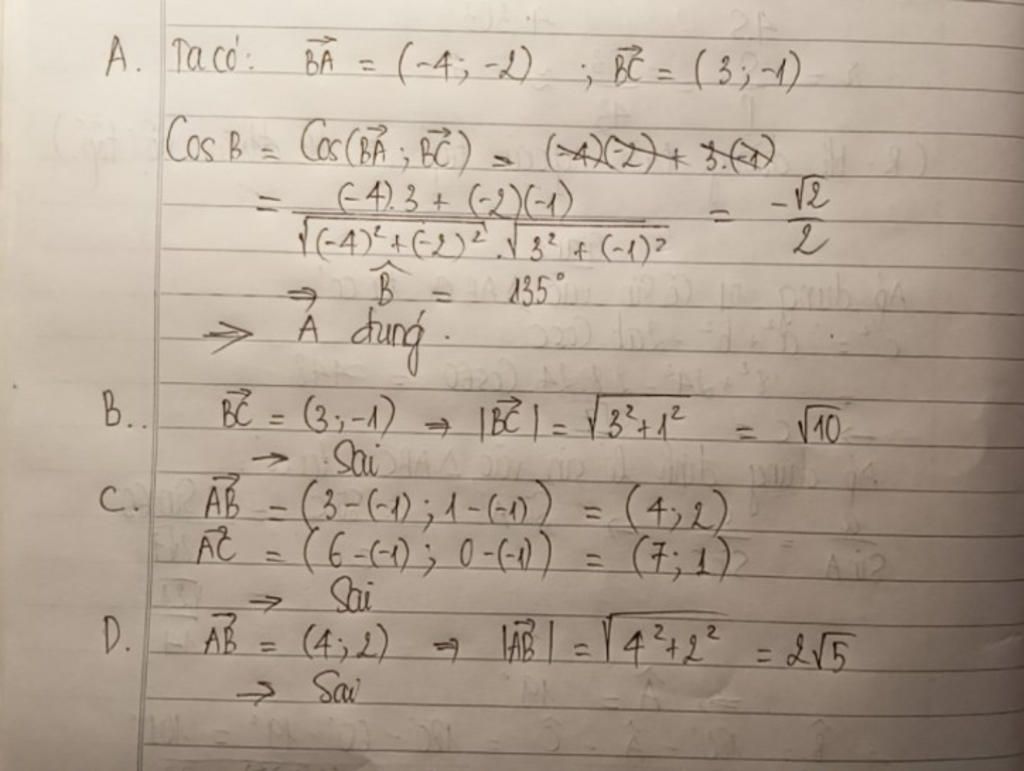 A. Ta có: BA→ = (-4; -2) ; BC→ = (3; -1)
Cos B = Cos(BA→; BC→) = (-4)(-2) + 3.(-1)
= (-4).3 + (-2)(-1) / √(-4)² + (-2)² . √3² + (-1)² = -√2 / 2
⇒ B̂ = 135°
⇒ A đúng.
B.. BC→ = (3; -1) ⇒ |BC→| = √3²+1² = √10
→ Sai
C. AB→ = (3-(-1); 1-(-1)) = (4; 2)
AC→ = (6-(-1); 0-(-1)) = (7; 1)
→ Sai
D. AB→ = (4; 2) ⇒ |AB→| = √4²+2² = 2√5
→ Sai